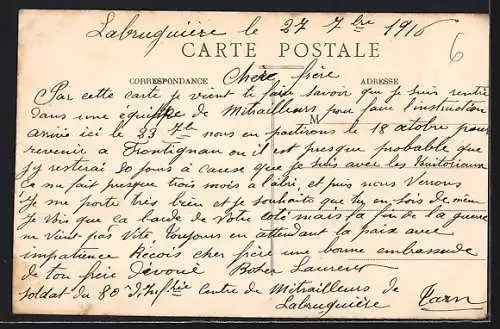 Labruguière le 27 7bre 1916
6
CARTE POSTALE
CORRESPONDANCE
ADRESSE
Chère frère
Par cette carte je vient te faire savoir que je suis rentré
dans une équippe de Mitrailleurs pour faire l'instruction
M
arrivé ici le 23 7bre nous en partirons le 18 octobre pour
revenir a Frontignan ou il est presque probable que
j'y resterai 20 jours a cause que je suis avec les
Ca me fait presque trois mois a l'abri, et puis nous Verrons
Je me porte très bien et je souhaite que tu en sois de même
Je Vois que ca barde de Votre coté mais la fin de la guerre
ne Vient pas Vite, toujours en attendant la paix avec
impatience Recois cher frère une bonne embrassade
de ton frère Dévoué Laurent
soldat du 80 d'Infrie Centre de Mitrailleurs de
Labruguière Tarn